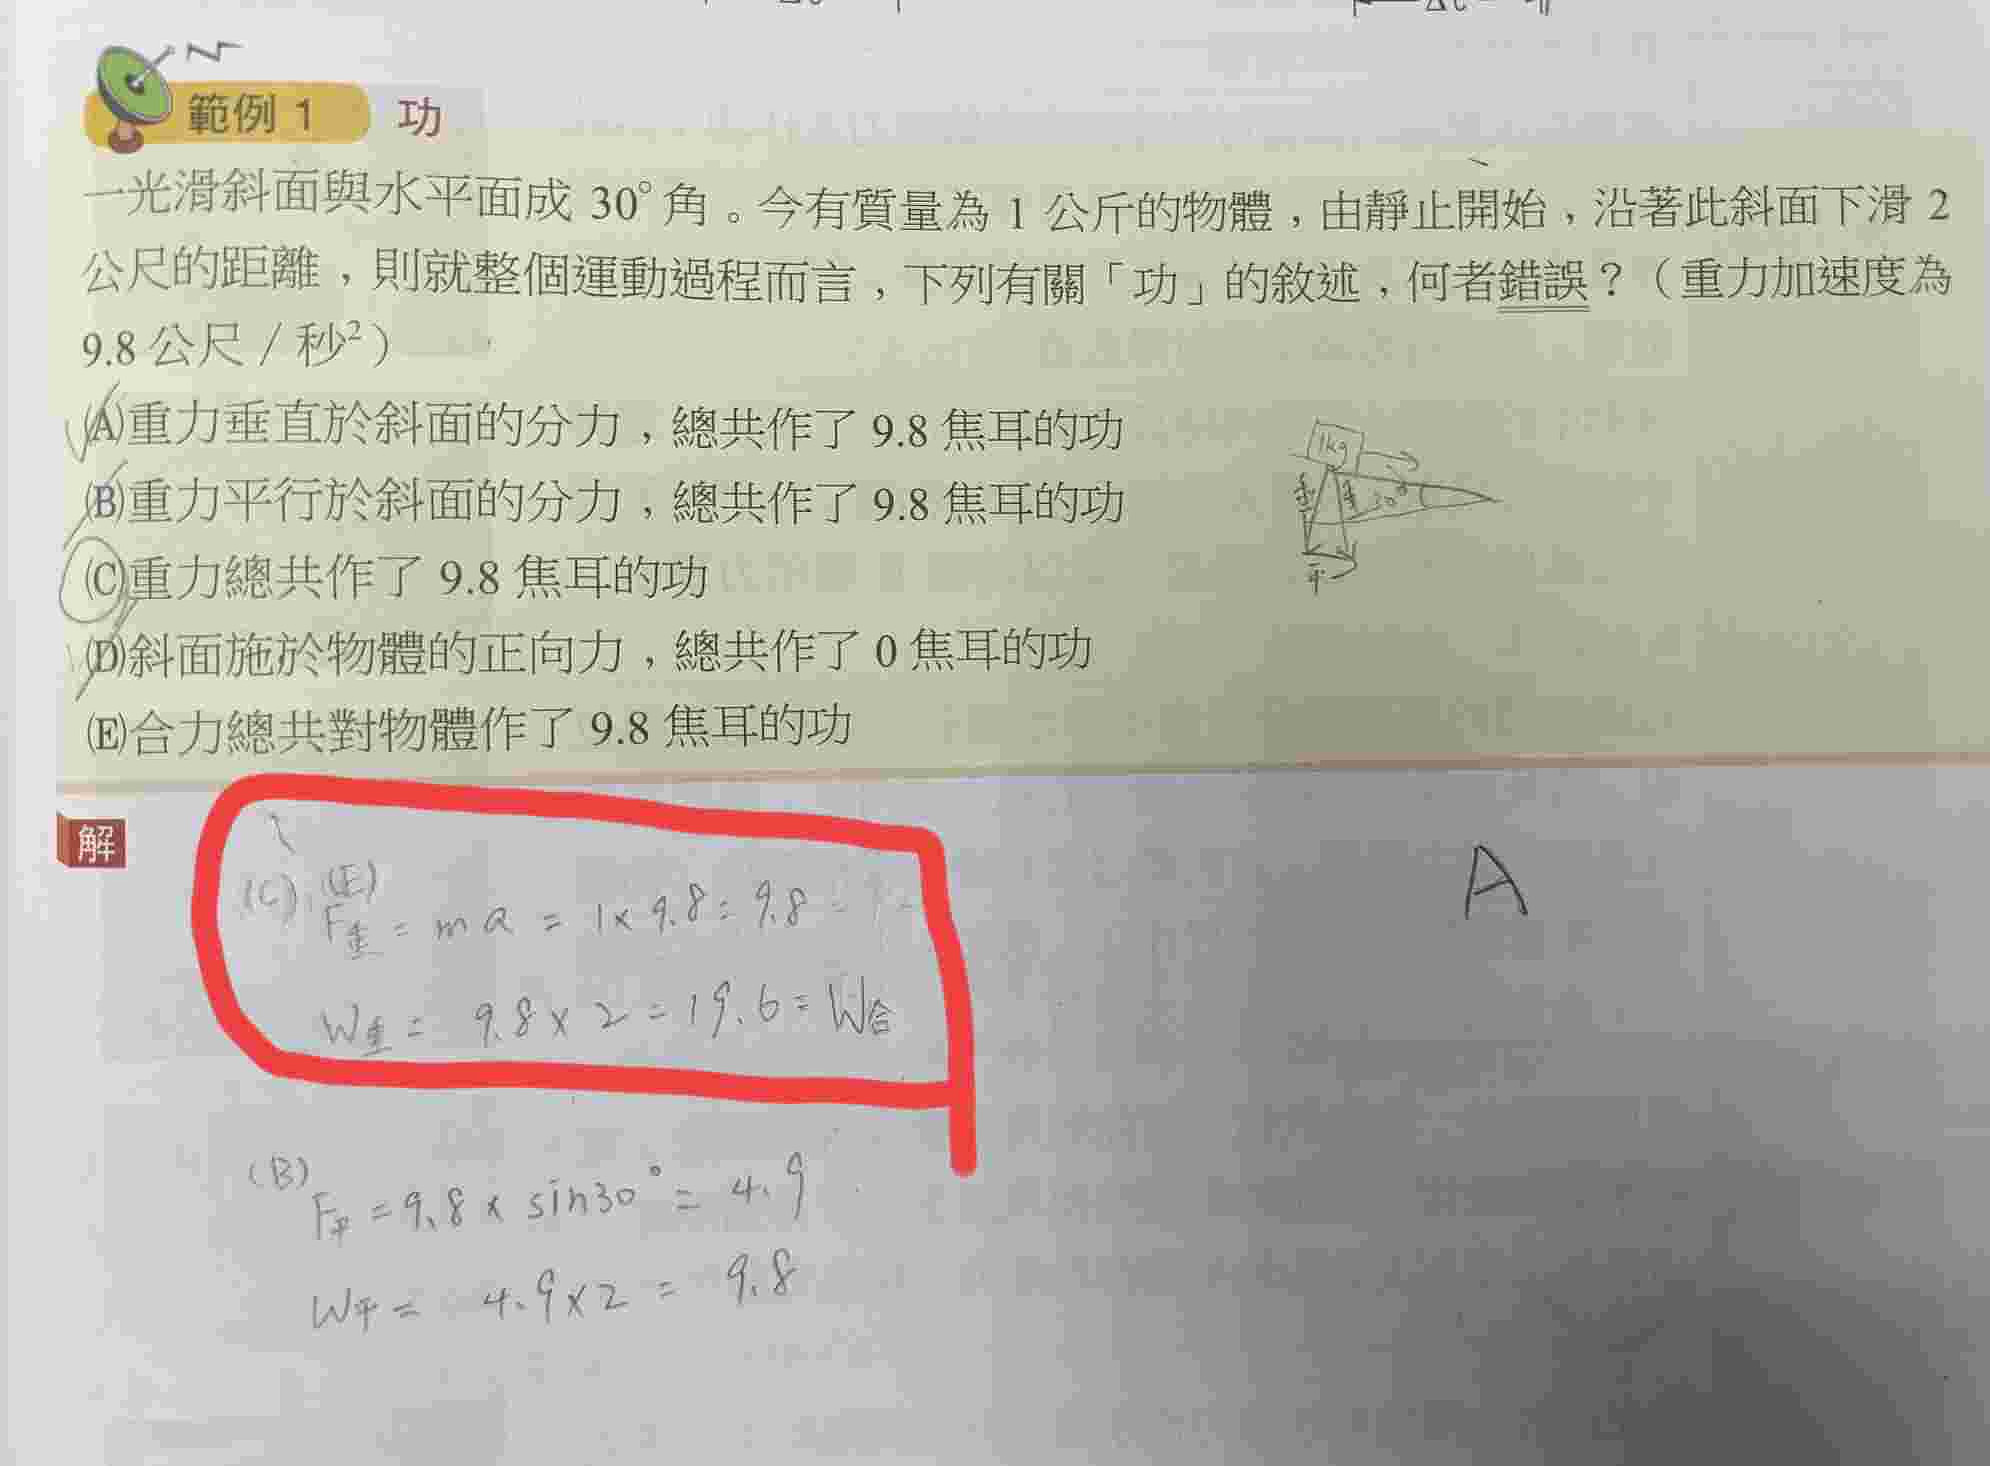 範例 1 功
一光滑斜面與水平面成 30° 角。今有質量為 1 公斤的物體，由靜止開始，沿著此斜面下滑 2
公尺的距離，則就整個運動過程而言，下列有關「功」的敘述，何者錯誤？（重力加速度為
9.8 公尺／秒²）
(A)重力垂直於斜面的分力，總共作了 9.8 焦耳的功
(B)重力平行於斜面的分力，總共作了 9.8 焦耳的功
(C)重力總共作了 9.8 焦耳的功
(D)斜面施於物體的正向力，總共作了 0 焦耳的功
(E)合力總共對物體作了 9.8 焦耳的功
1kg
30°
平
解
(C), (E)
F重 = ma = 1×9.8 = 9.8
W重 = 9.8×2 = 19.6 = W合
A
(B)
F平 = 9.8 × sin30° = 4.9
W平 = 4.9×2 = 9.8